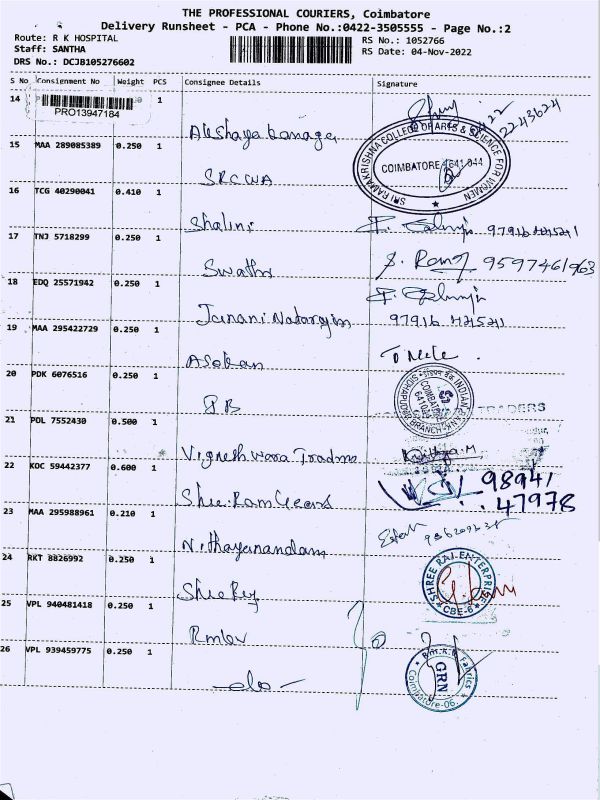 THE PROFESSIONAL COURIERS, Coimbatore
Delivery Runsheet - PCA - Phone No.:0422-3505555 - Page No.:2
Route: R K HOSPITAL
RS No.: 1052766
Staff: SANTHA
RS Date: 04-Nov-2022
DRS No.: DCJB105276602
S No Consignment No Weight PCS Consignee Details Signature
14 1
PRO13947184
2243624
SRI RAMAKRISHNA COLLEGE OF ARTS & SCIENCE FOR WOMEN
COIMBATORE - 641 044
15 MAA 289085389 0.250 1
SRCWA
16 TCG 40290041 0.410 1
Shalini
17 TNJ 5718299 0.250 1
Swathi
9597461963
18 EDQ 25571942 0.250 1
Janani Natarajan
19 MAA 295422729 0.250 1
Asokan
20 PDK 6076516 0.250 1
INDIAN BANK
SIDHAPUDUR BRANCH
COIMBATORE
TRADERS
21 POL 7552430 0.500 1
Vigneshwara Traders
22 KOC 59442377 0.600 1
98941
47978
Shree Ram Gears
23 MAA 295988961 0.210 1
Nithayanandam
24 RKT 8826992 0.250 1
SHREE RAJ ENTERPRISE
CBE-6
Shree Raj
25 VPL 940481418 0.250 1
26 VPL 939459775 0.250 1
B.M.R.B Fabrics
GRN
Coimbatore-06.
-do-